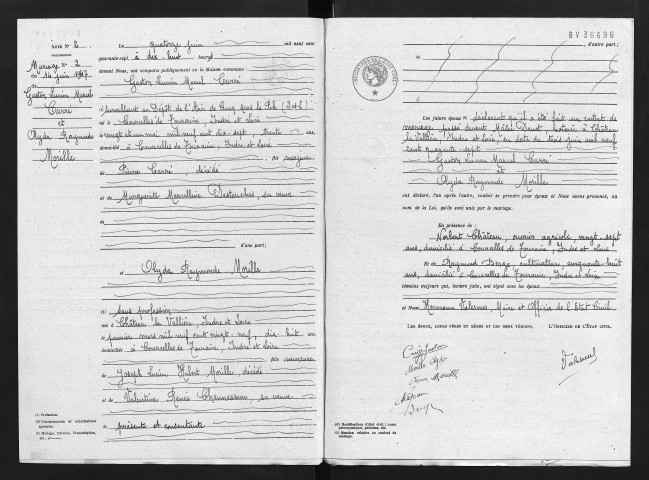 ACTE N° 2
Mariage N° 2
du 14 juin 1947
Gaston Lucien Marcel
Carré
et
Olyda Raymonde
Morille
(1) Profession.
Le quatorze juin mil neuf cent
quarante-sept, à dix huit heures
devant Nous, ont comparu publiquement en la Maison commune :
Gaston Lucien Marcel Carré
(1) surveillant au Dépôt de l'Air de Cinq
né à Courcelles de Touraine, Indre et Loire
le vingt et un mai mil neuf cent dix-sept, trente ans,
domicilié à Courcelles de Touraine, Indre et Loire
fils majeur
de Pierre Carré, décédé
et de Marguerite Marcelline Destouches, sa veuve
d'une part;
et Olyda Raymonde Morille
(1) sans profession
née à Château la Vallière, Indre et Loire
le premier mars mil neuf cent vingt-neuf, dix huit ans,
domiciliée à Courcelles de Touraine, Indre et Loire
fille mineure
de Joseph Lucien Hubert Morille, décédé
et de Valentine Renée Chennesseau, sa veuve
présente et consentante
BV36698
, d'autre part;
Les futurs époux déclarent qu'il a été fait un contrat de
mariage passé devant Maître notaire à Château
la Vallière, Indre et Loire, en date du trois juin mil neuf
cent quarante sept
Gaston Lucien Marcel Carré
et
Olyda Raymonde Morille
ont déclaré, l'un après l'autre, vouloir se prendre pour époux et Nous avons prononcé, au
nom de la Loi, qu'ils sont unis par le mariage.
En présence de :
Norbert Château, ouvrier agricole, vingt-sept
ans, domicilié à Courcelles de Touraine, Indre et Loire
Et de Raymond, cultivateur, cinquante huit
ans, domicilié à Courcelles de Touraine, Indre et Loire
témoins majeurs qui, lecture faite, ont signé avec les époux
et Nous Hermann Valermes, Maire et Officier de l'Etat Civil.
LES ÉPOUX, LEURS PÈRES ET MÈRES ET LES DEUX TÉMOINS, L'OFFICIER DE L'ÉTAT CIVIL,